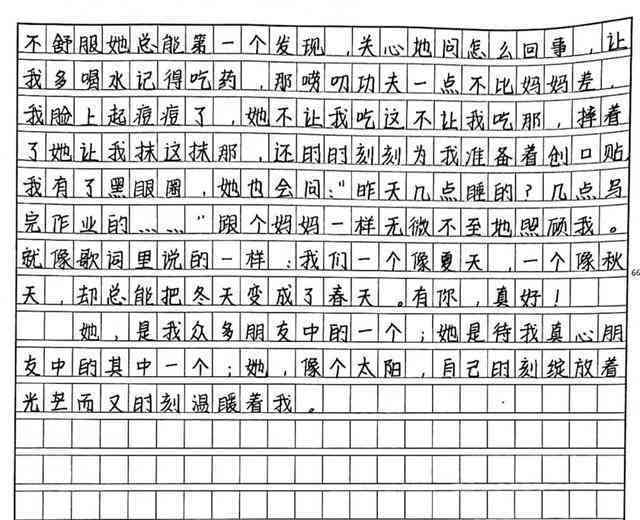 不舒服她总能第一个发现，关心地问怎么回事，让
我多喝水记得吃药，那唠叨功夫一点不比妈妈差，
我脸上起痘痘了，她不让我吃这不让我吃那，摔着
了她让我抹这抹那，还时时刻刻为我准备着创口贴
我有了黑眼圈，她也会问：“昨天几点睡的？几点写
完作业的……”跟个妈妈一样无微不至地照顾我。
就像歌词里说的一样：我们一个像夏天，一个像秋
天，却总能把冬天变成了春天。有你，真好！
她，是我众多朋友中的一个；她是待我真心朋
友中的其中一个；她，像个太阳，自己时刻绽放着
光芒而又时刻温暖着我。
66